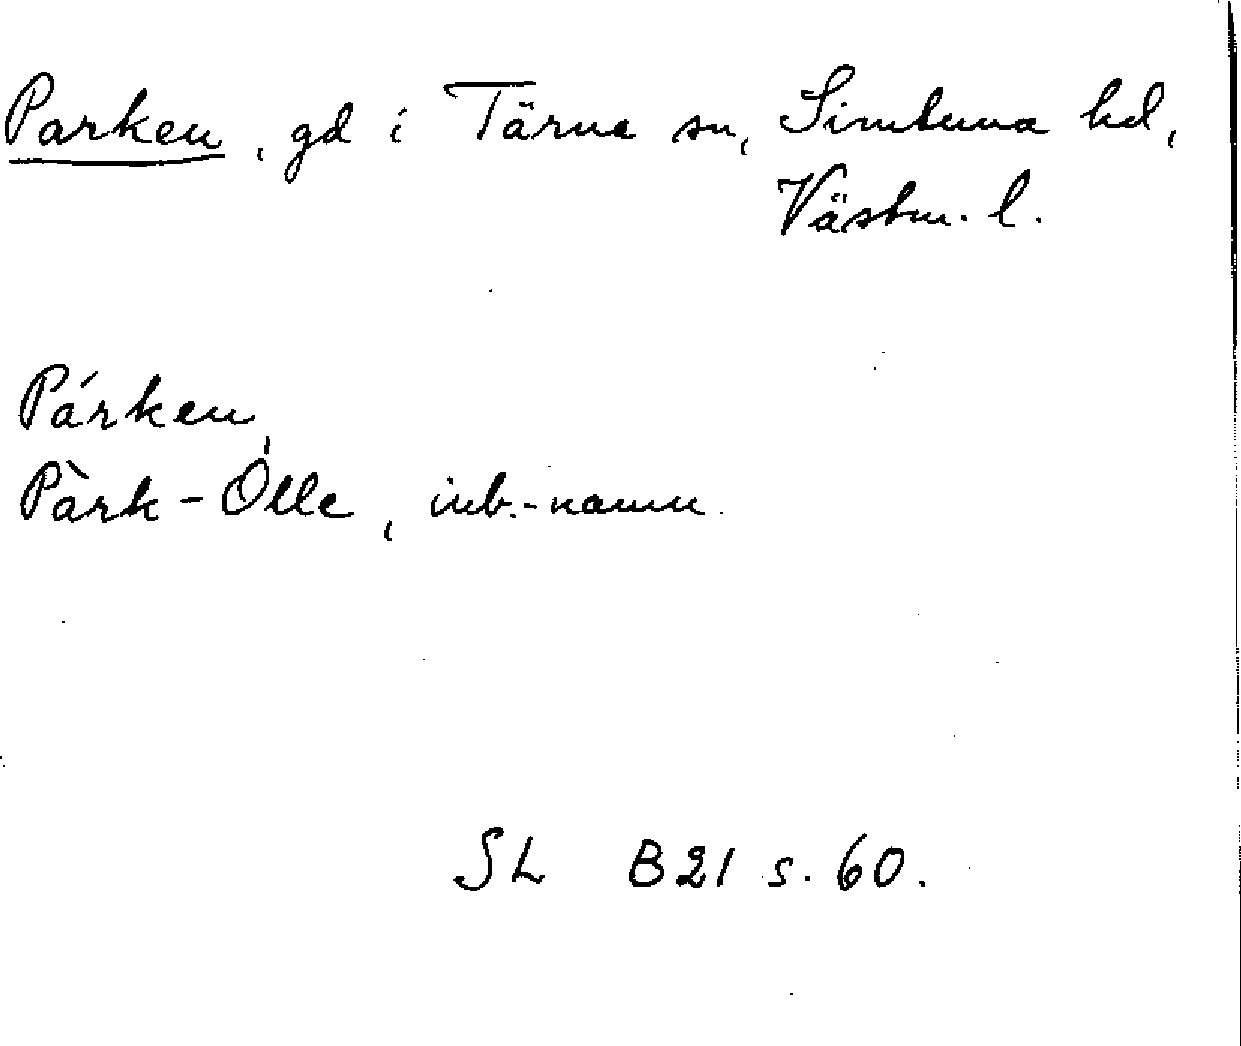 Parken, gd i Tärna sn, Simtuna hd,
Västm. l.
Párken
Pàrk-Ólle, inb.-namn.
SL B21 s. 60.